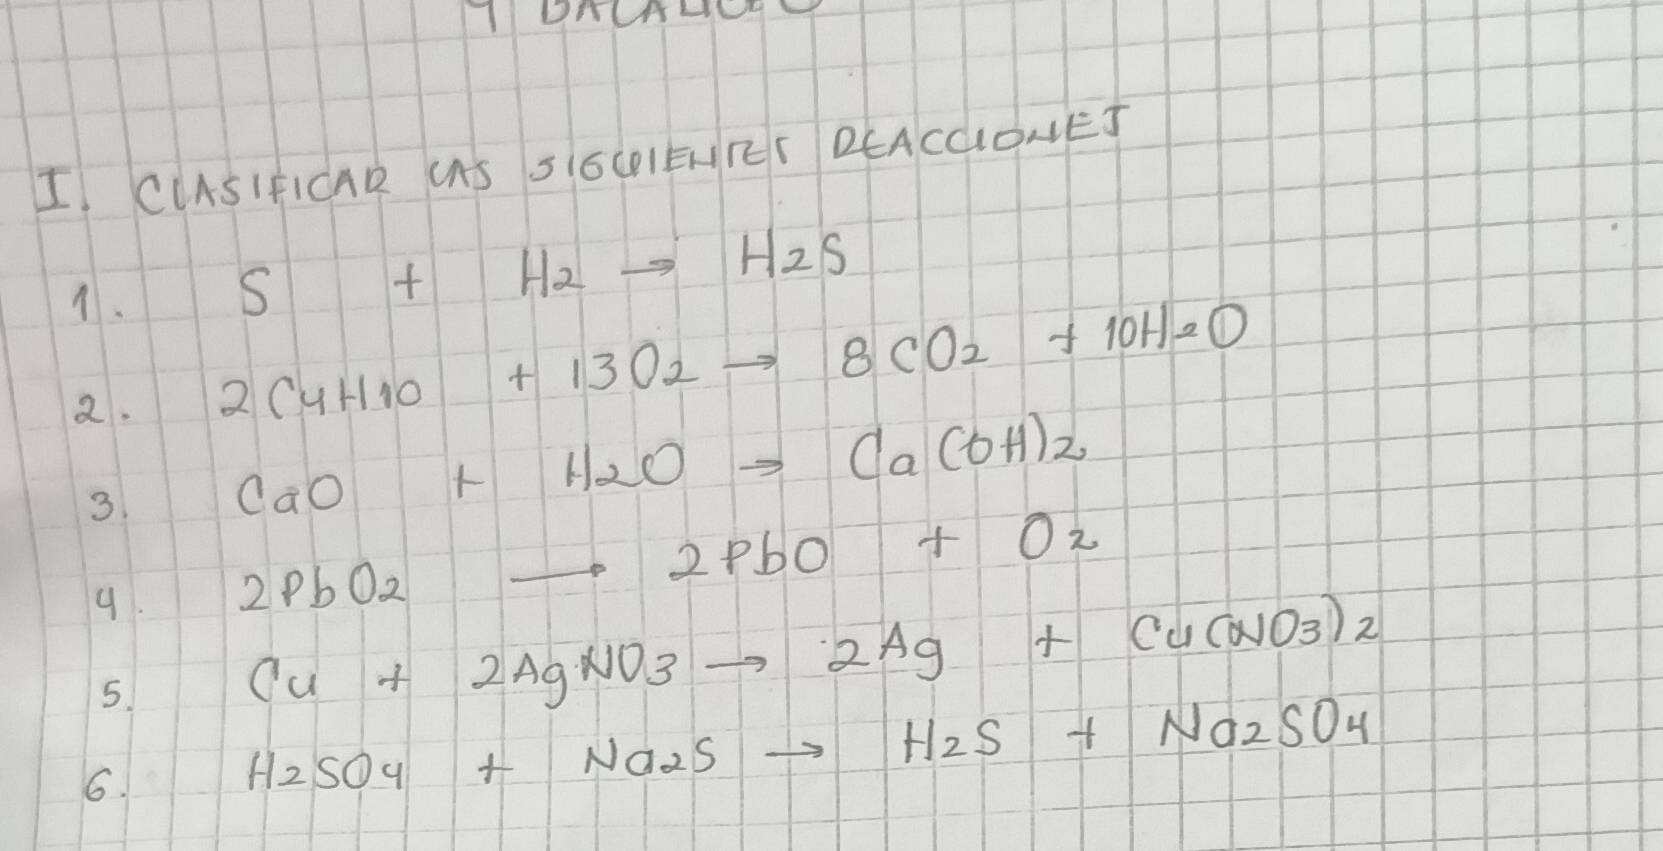 I. CLASIFICAR LAS SIGUIENTES REACCIONES
1. S + H2 → H2S
2. 2C4H10 + 13O2 → 8CO2 + 10H2O
3. CaO + H2O → Ca(OH)2
4. 2PbO2 → 2PbO + O2
5. Cu + 2AgNO3 → 2Ag + Cu(NO3)2
6. H2SO4 + Na2S → H2S + Na2SO4